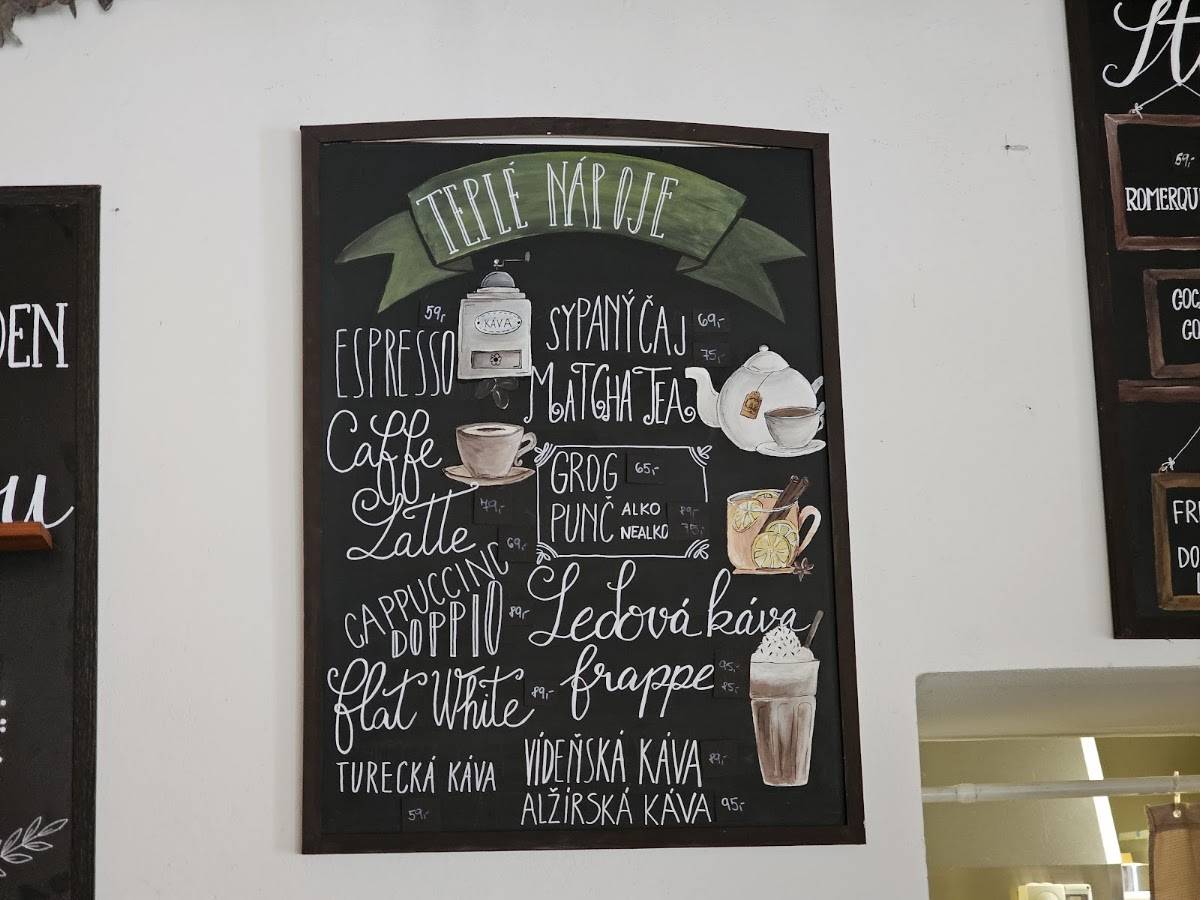 TEPLÉ NÁPOJE
59,-
KÁVA
ESPRESSO
Caffe
Latte
79,-
69,-
CAPPUCCINO
DOPPIO 89,-
Flat White 89,-
TURECKÁ KÁVA
59,-
SYPANÝ ČAJ 69,-
75,-
MATCHA TEA
GROG 65,-
PUNČ ALKO 89,-
NEALKO 75,-
Ledová káva
frappe 95,-
85,-
VÍDEŇSKÁ KÁVA 89,-
ALŽÍRSKÁ KÁVA 95,-
DEN
u
59,-
ROMERQU
COC
CO
FR
DO